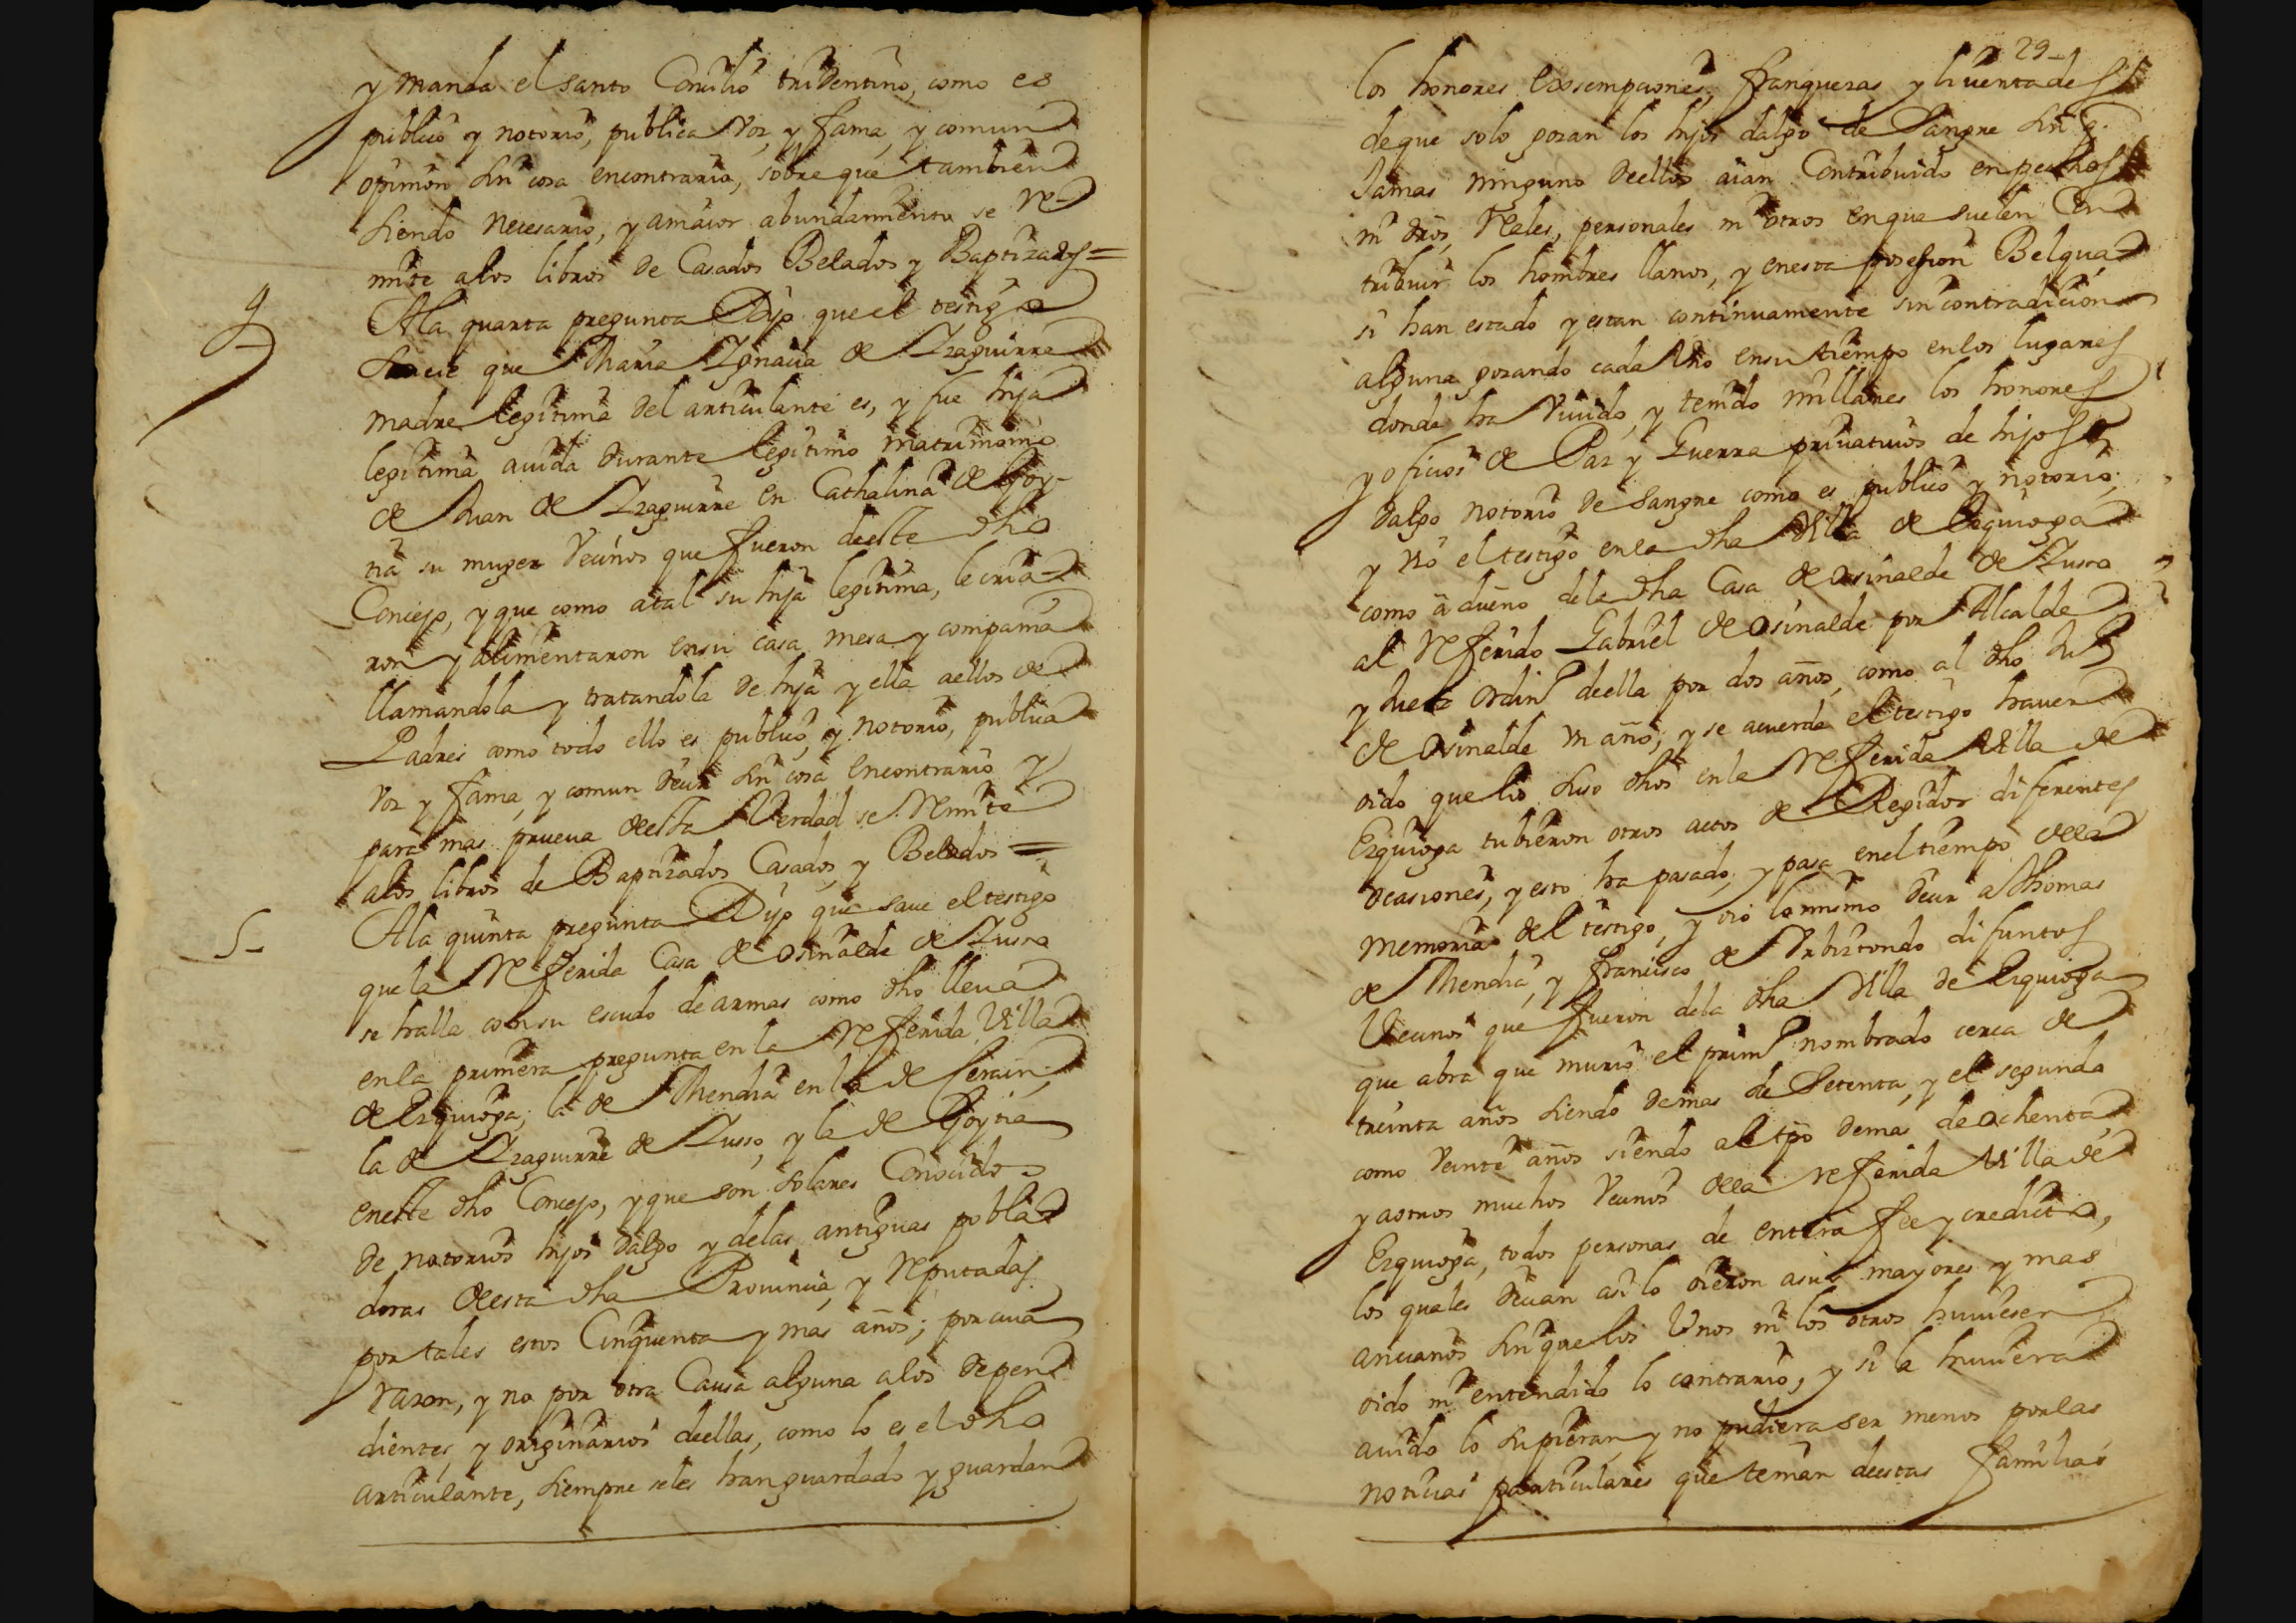 y manda el santo Concilio tridentino, como es
publico y notorio, publica voz, y fama, y comun
opinion sin cosa encontrario, sobre que tambien
siendo necesario, y amaior abundamiento se re-
mite alos libros de Casados Belados y Baptizados =
4 Ala quarta pregunta Dijo que el testigo
save que Maria Ygnacia de Yzaguirre
madre legitima del articulante es, y fue hija
legitima avida durante legitimo matrimonio
de Juan de Yzaguirre en Cathalina de Goy-
tia su muger vecinos que fueron deeste dho
Concejo, y que como atal su hija legitima, le cria-
ron y alimentaron ensu casa mesa y compania
llamandola y tratandola de hija y ella aellos de
Padres como todo ello es publico, y notorio, publica
voz y fama, y comun decir sin cosa encontrario y
para mas prueva deesta Verdad se remite
alos libros de Baptizados Casados, y Belados =
5- Ala quinta pregunta Dijo que save el testigo
que la referida Casa de Osinalde de Suso
se halla con su escudo de armas como dho lleva
enla primera pregunta en la referida Villa
de Ezquioga, la de Mendia en la de Cerain;
la de Yzaguirre de Suso, y la de Goytia
eneste dho Concejo, y que son solares Conocidos
de notorios hijos dalgo y delas antiguas pobla-
doras deesta dha Provincia, y reputadas
por tales estos Cinquenta y mas años; por cuia
razon, y no por otra Causa alguna alos depen-
dientes, y originarios deellas, como lo es el dho
articulante, siempre seles han guardado y guardan
29-
los honores Exsempciones, franquezas y livertades
de que solo gozan los hijos dalgo de Sangre sin q.
Jamas ninguno deellos aian Contribuido en pechos
ni dros, Reales, personales ni otros en que suelen Con-
tribuir los hombres llanos, y enesta posesion Belqua-
si han estado y estan continuamente sin contradicion
alguna gozando cada Uno ensu tiempo enlos lugares
donde ha vivido, y tenido millares los honores
y oficios de Paz y Guerra privativos de hijos
dalgo notorio de Sangre como es publico y notorio;
y vió el testigo enla dha Villa de Ezquioga
como a dueño dela dha Casa de Osinalde de Suso
al referido Gabriel de Osinalde por Alcalde
y Juez ordin.º deella por dos años, como al dho
de Osinalde un año; y se acuerda el testigo haver
oido que los suso dhos enla referida Villa de
Ezquioga tubieron otros actos de Regidor diferentes
ocasiones, y esto ha pasado, y pasa enel tiempo dela
memoria del testigo, y oió lo mismo decir a Thomas
de Mendia, y francisco de Urbiztondo difuntos
Vecinos que fueron dela dha Villa de Ezquioga
que abra que murió el prim.º nombrado cerca de
treinta años siendo demas de Setenta, y el segundo
como veinte años siendo al tpo demas de ochenta,
y aotros muchos vecinos dela referida Villa de
Ezquioga, todos personas de entera fee y credicto,
los quales decian asi lo oieron asus mayores y mas
ancianos sin que los Unos ni los otros huviesen
oido ni entendido lo contrario, y si la huviera
avido lo supieran, y no pudiera ser menos por las
noticias particulares que tenian deestas familias